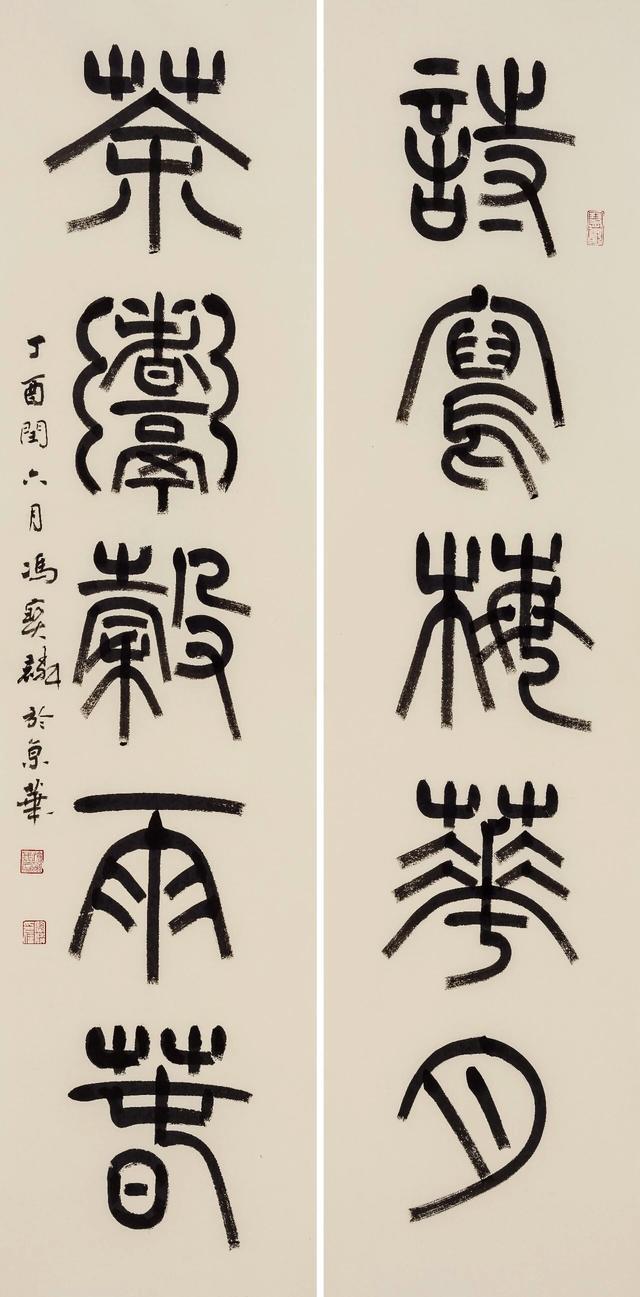 詩寫梅華月
茶煮穀雨春
丁酉閏六月馮寶麟於京華